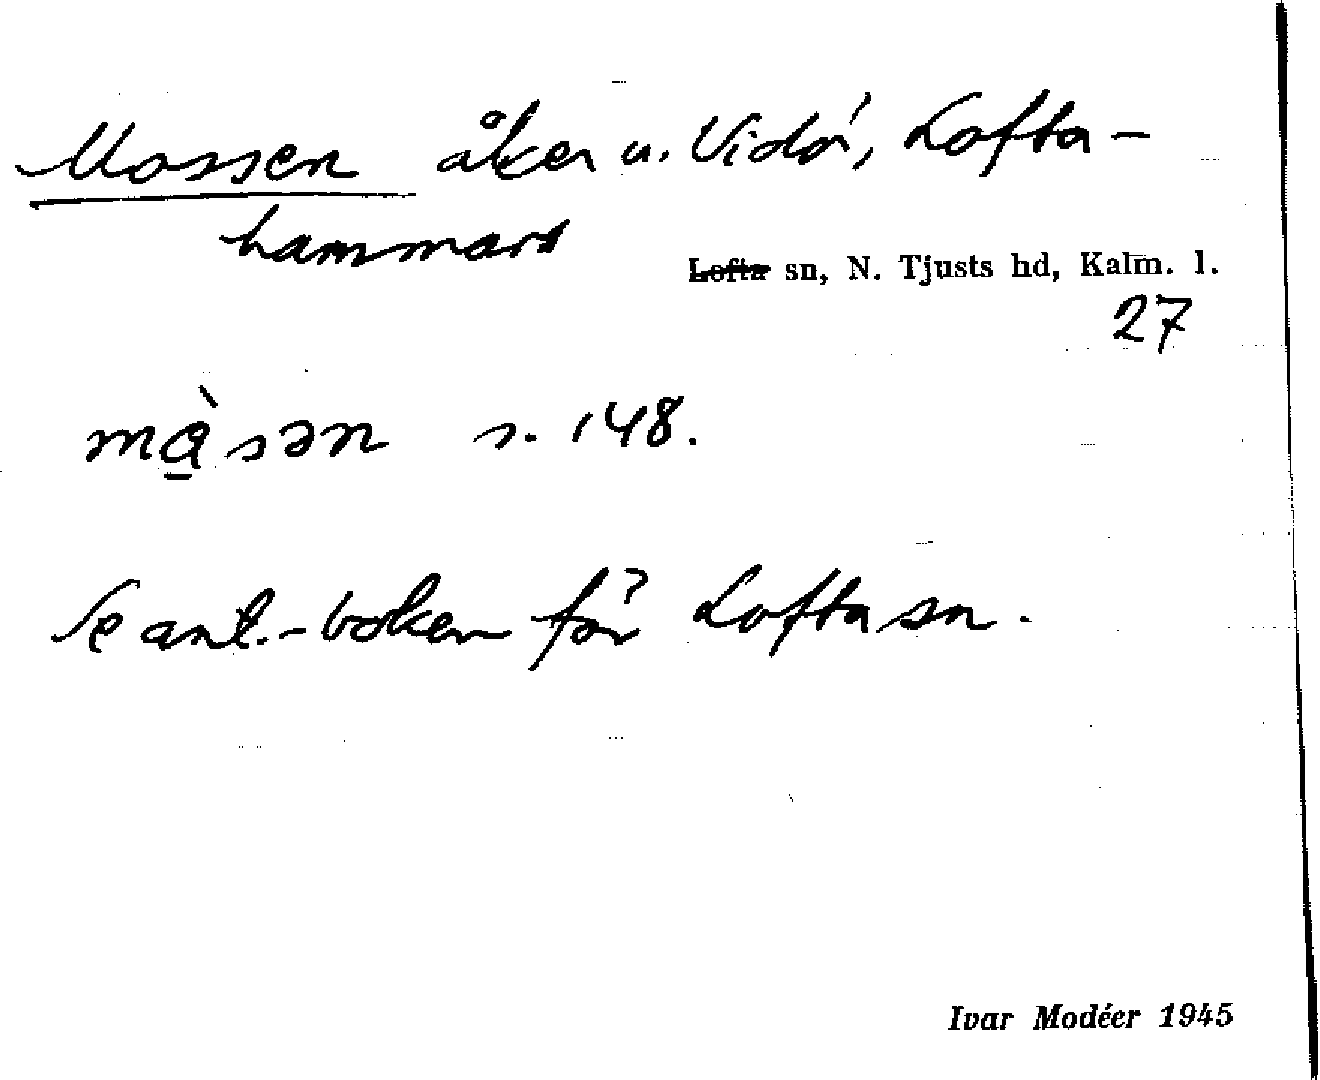 Mossen åker u. Vidö, Lofta-
hammars
Lofta sn, N. Tjusts hd, Kalm. l.
27
mɑ̀sən s. 148.
Se ant.-boken för Lofta sn.
Ivar Modéer 1945